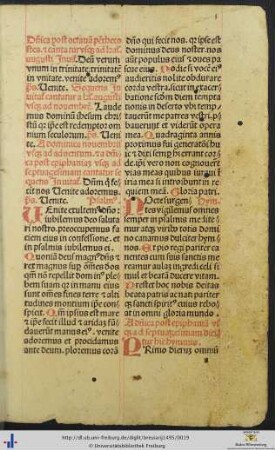 Dñica post octauã penthecos
stes. z cantatur vsqz ad kal.
augusti. Inuit. Deũ verum
vnum in trinitate trinitatẽ
in vnitate. venite adorem⁹.
ps. Venite. Sequens In
uitat. cantatur a kal. augusti
vsqz ad nouembrẽ. Laude
mus dominũ ihesum chri
stũ qz ipse est redemptor om
nium seculorum. ps. Veni
te. A dominica nouembris
vsqz ad aduentum. z a dñi
ca post epiphaniã vsqz ad
septuagesimam cantatur se
quens Inuitat. Dñm q fe
cit nos Venite adoremus.
ps. Venite. Psalm⁹.
Uenite exultem⁹ dño:
iubilemus deo saluta
ri nostro. preoccupemus fa
ciem eius in confessione. et
in psalmis iubilemus ei.
Quoniã deus magn⁹ dñs et
rex magnus sup omnes deos
qm̃ nõ repellit domin⁹ ple
bem suam qz in manu eius
sunt omnes fines terre z alti
tudines montium ipse con
spicit. Qm̃ ipsius est mare
z ipse fecit illud z aridaz fũ
dauerũt manus ei⁹. venite
adoremus et procidamus
ante deum. ploremus corã
dño qui fecit nos. qz ipse est
dominus deus noster. nos
aũt populus eius z oues pa
scue eius. Hodie si vocẽ ei⁹
audieritis nolite obdurare
corda vestra. sicut in exacer
batione scd̃m diem tempta
tionis in deserto vbi tempta
uerũt me patres vestri. pro
bauerunt et viderũt opera
mea. Quadraginta annis
proximus fui generatiõi hu
ic z dixi semp hi errant cor
de. ipsi vero non cognouerũt
vias meas quibus iuraui in
ira mea si introibunt in re
quiem meã. Gloria patri.
Nocte surgen. Hym.
tes vigilemus omnes
semper in psalmis me
mur atqz viribus totis domi
no canamus dulciter hym
nos. Ut pio regi pariter ca
nentes cum suis sanctis me
reamur aulaz ingredi celi si
mul et beatã ducere vitam.
Prestet hoc nobis deitas
beata patris ac nati pariter
qz sancti spirit⁹ cuius rebo
at in omni gloria mundo.
A dñica post epiphaniã
vsqz ad septuagesimam dici
tur hic hymnus.
PRimo dierum omniũ
http://dl.ub.uni-freiburg.de/diglit/breviarij1495/0019
© Universitätsbibliothek Freiburg